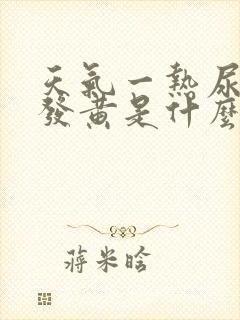 天氣一熱尿
發黃是什麼
蔣米晗